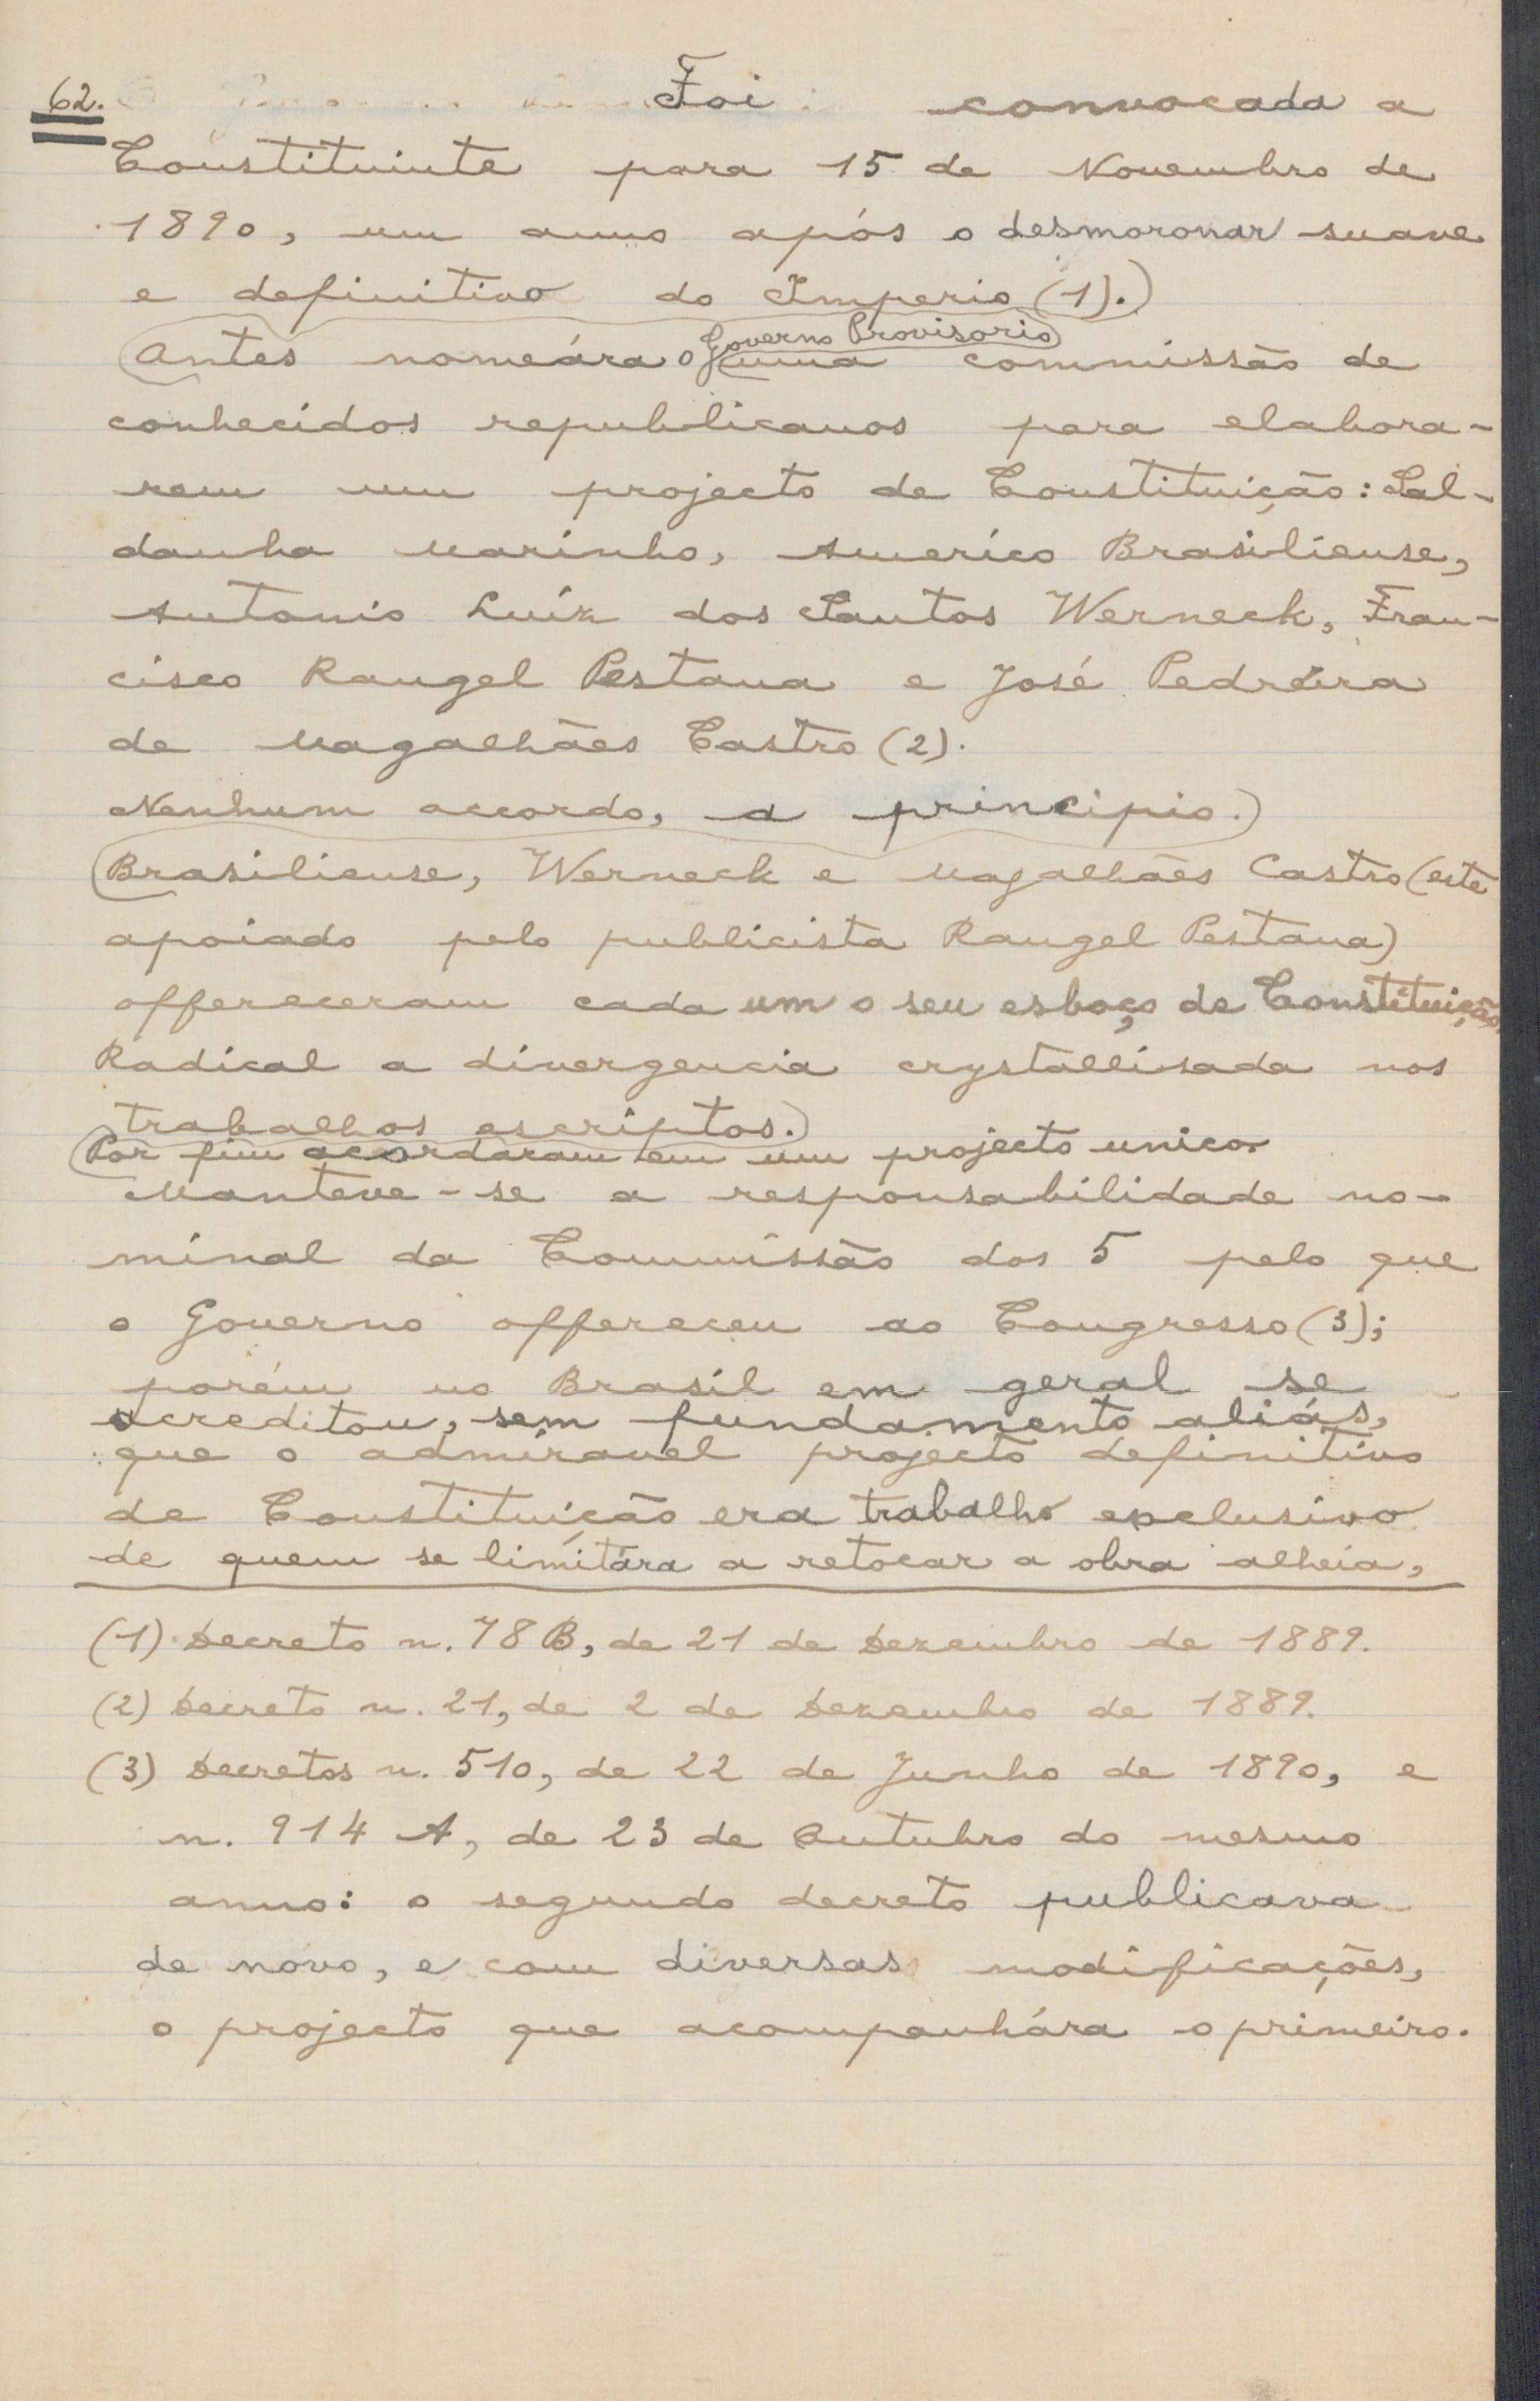 62. Foi convocada a
Constituinte para 15 de Novembro de
1890, um anno após o desmoronar suave
e definitivo do Imperio (1).
Governo Provisorio
Antes nomeára o uma commissão de
conhecidos republicanos para elabora-
rem um projecto de Constituição: Sal-
danha Marinho, Americo Brasiliense,
Antonio Luiz dos Santos Werneck, Fran-
cisco Rangel Pestana e José Pedreira
de Magalhães Castro (2).
Nenhum accordo, a principio.
Brasiliense, Werneck e Magalhães Castro (este
apoiado pelo publicista Rangel Pestana)
offereceram cada um o seu esboço de Constituição.
Radical a divergencia crystallisada nos
trabalhos escriptos.
Por fim acordaram em um projecto unico.
Manteve-se a responsabilidade no-
minal da Commissão dos 5 pelo que
o Governo offereceu ao Congresso (3);
porém no Brasil em geral se
acreditou, sem fundamento aliás,
que o admiravel projecto definitivo
de Constituição era trabalho exclusivo
de quem se limitára a retocar a obra alheia,
(1) Decreto n. 78 B, de 21 de Dezembro de 1889.
(2) Decreto n. 21, de 2 de Dezembro de 1889.
(3) Decretos n. 510, de 22 de Junho de 1890, e
n. 914 A, de 23 de Outubro do mesmo
anno: o segundo decreto publicava
de novo, e com diversas modificações,
o projecto que acompanhára o primeiro.